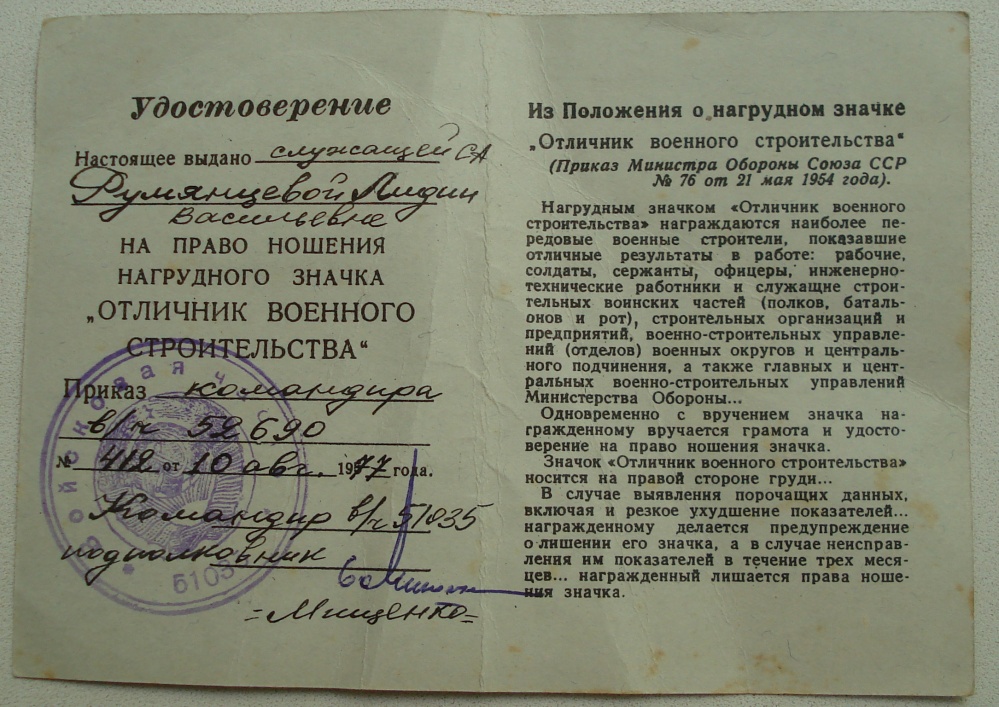 Удостоверение
Настоящее выдано служащей СА
Румянцевой Лидии
Васильевне
НА ПРАВО НОШЕНИЯ
НАГРУДНОГО ЗНАЧКА
„ОТЛИЧНИК ВОЕННОГО
СТРОИТЕЛЬСТВА“
Приказ командира
в/ч 52690
№ 412 от 10 авг. 1977 года.
Командир в/ч 51035
подполковник
=Мищенко=
Войсковая ч
5103
Из Положения о нагрудном значке
„Отличник военного строительства“
(Приказ Министра Обороны Союза ССР
№ 76 от 21 мая 1954 года).
Нагрудным значком «Отличник военного
строительства» награждаются наиболее пе-
редовые военные строители, показавшие
отличные результаты в работе: рабочие,
солдаты, сержанты, офицеры, инженерно-
технические работники и служащие строи-
тельных воинских частей (полков, баталь-
онов и рот), строительных организаций и
предприятий, военно-строительных управле-
ний (отделов) военных округов и централь-
ного подчинения, а также главных и цент-
ральных военно-строительных управлений
Министерства Обороны...
Одновременно с вручением значка на-
гражденному вручается грамота и удосто-
верение на право ношения значка.
Значок «Отличник военного строительства»
носится на правой стороне груди...
В случае выявления порочащих данных,
включая и резкое ухудшение показателей...
награжденному делается предупреждение
о лишении его значка, а в случае неисправ-
ления им показателей в течение трех меся-
цев... награжденный лишается права ноше-
ния значка.